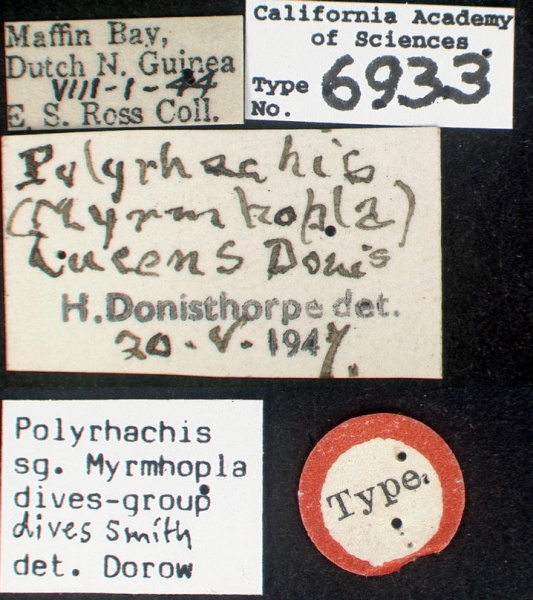 Maffin Bay,
Dutch N. Guinea
VIII-1-44
E. S. Ross Coll.
California Academy
of Sciences
Type
No. 6933
Polyrhachis
(Myrmhopla)
lucens Donis
H. Donisthorpe det.
20·V·1947.
Polyrhachis
sg. Myrmhopla
dives-group
dives Smith
det. Dorow
Type.